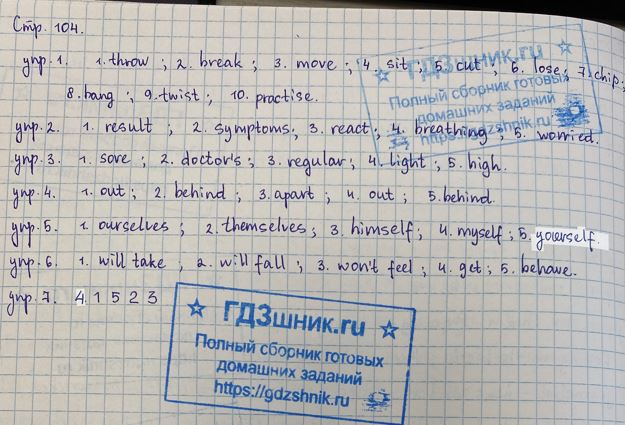 Стр. 104.
упр. 1. 1. throw ; 2. break ; 3. move ; 4. sit ; 5. cut ; 6. lose ; 7. chip ;
8. bang ; 9. twist ; 10. practise.
упр. 2. 1. result ; 2. symptoms ; 3. react ; 4. breathing ; 5. worried.
упр. 3. 1. sore ; 2. doctor's ; 3. regular ; 4. light ; 5. high.
упр. 4. 1. out ; 2. behind ; 3. apart ; 4. out ; 5. behind.
упр. 5. 1. ourselves ; 2. themselves ; 3. himself ; 4. myself ; 5. yourself.
упр. 6. 1. will take ; 2. will fall ; 3. won't feel ; 4. get ; 5. behave.
упр. 7. 4 1 5 2 3
ГДЗшник.ru
Полный сборник готовых
домашних заданий
https://gdzshnik.ru
ГДЗшник.ru
Полный сборник готовых
домашних заданий
https://gdzshnik.ru